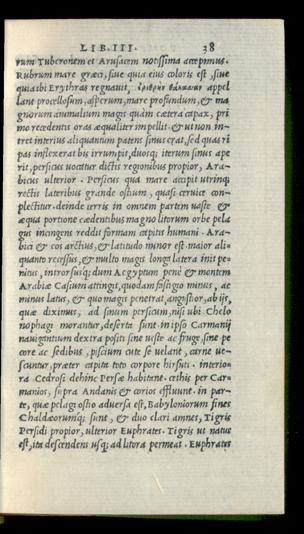 LIB. III. 38
rum Tuberonem et Arusacem notissima accepimus.
Rubrum mare græci, siue quia eius coloris est, siue
quia ibi Erythras regnauit, ἐρυθρὴν θάλασσαν appel
lant procellosum, asperum, mare profundum, & ma
gnorum animalium magis quàm cætera capax, pri
mo recedentis oras æqualiter impellit. & ut non in-
tret interius aliquantum patens sinus erat, sed quas ri
pas inflexerat bis irrumpit, duosq; iterum sinus ape
rit, persicus uocatur dictis regionibus propior, Ara-
bicus ulterior. Persicus qua mare accipit utrinq;
rectis lateribus grande ostium, quasi ceruice com-
plectitur. deinde terris in omnem partem uaste &
æqua portione cædentibus magno litorum orbe pela
gus incingens reddit formam capitis humani. Ara-
bici & os arctius, & latitudo minor est. maior ali-
quanto recessus, & multo magis longa latera init pe-
nitus, introrsusq; dum Aegyptum penè & montem
Arabiæ Casium attingit, quodam fastigio minus, ac
minus latus, & quo magis penetrat, angustior, ab ijs,
quæ diximus, ad sinum persicum, nisi ubi Chelo
nophagi morantur, deserta sunt. in ipso Carmanij
nauigantium dextra positi sine ueste ac fruge, sine pe
core ac sedibus, piscium cute se uelant, carne ue-
scuntur, præter capita toto corpore hirsuti. interio-
ra Cedrosi dehinc Persæ habitant. cæthis per Car-
manios, supra Andanis & corios effluunt. in par-
te, quæ pelagi ostio aduersa est, Babyloniorum fines
Chaldæorumq; sunt, & duo clari amnes, Tigris
Persidi propior, ulterior Euphrates. Tigris ut natus
est, ita descendens usq; ad litora permeat. Euphrates